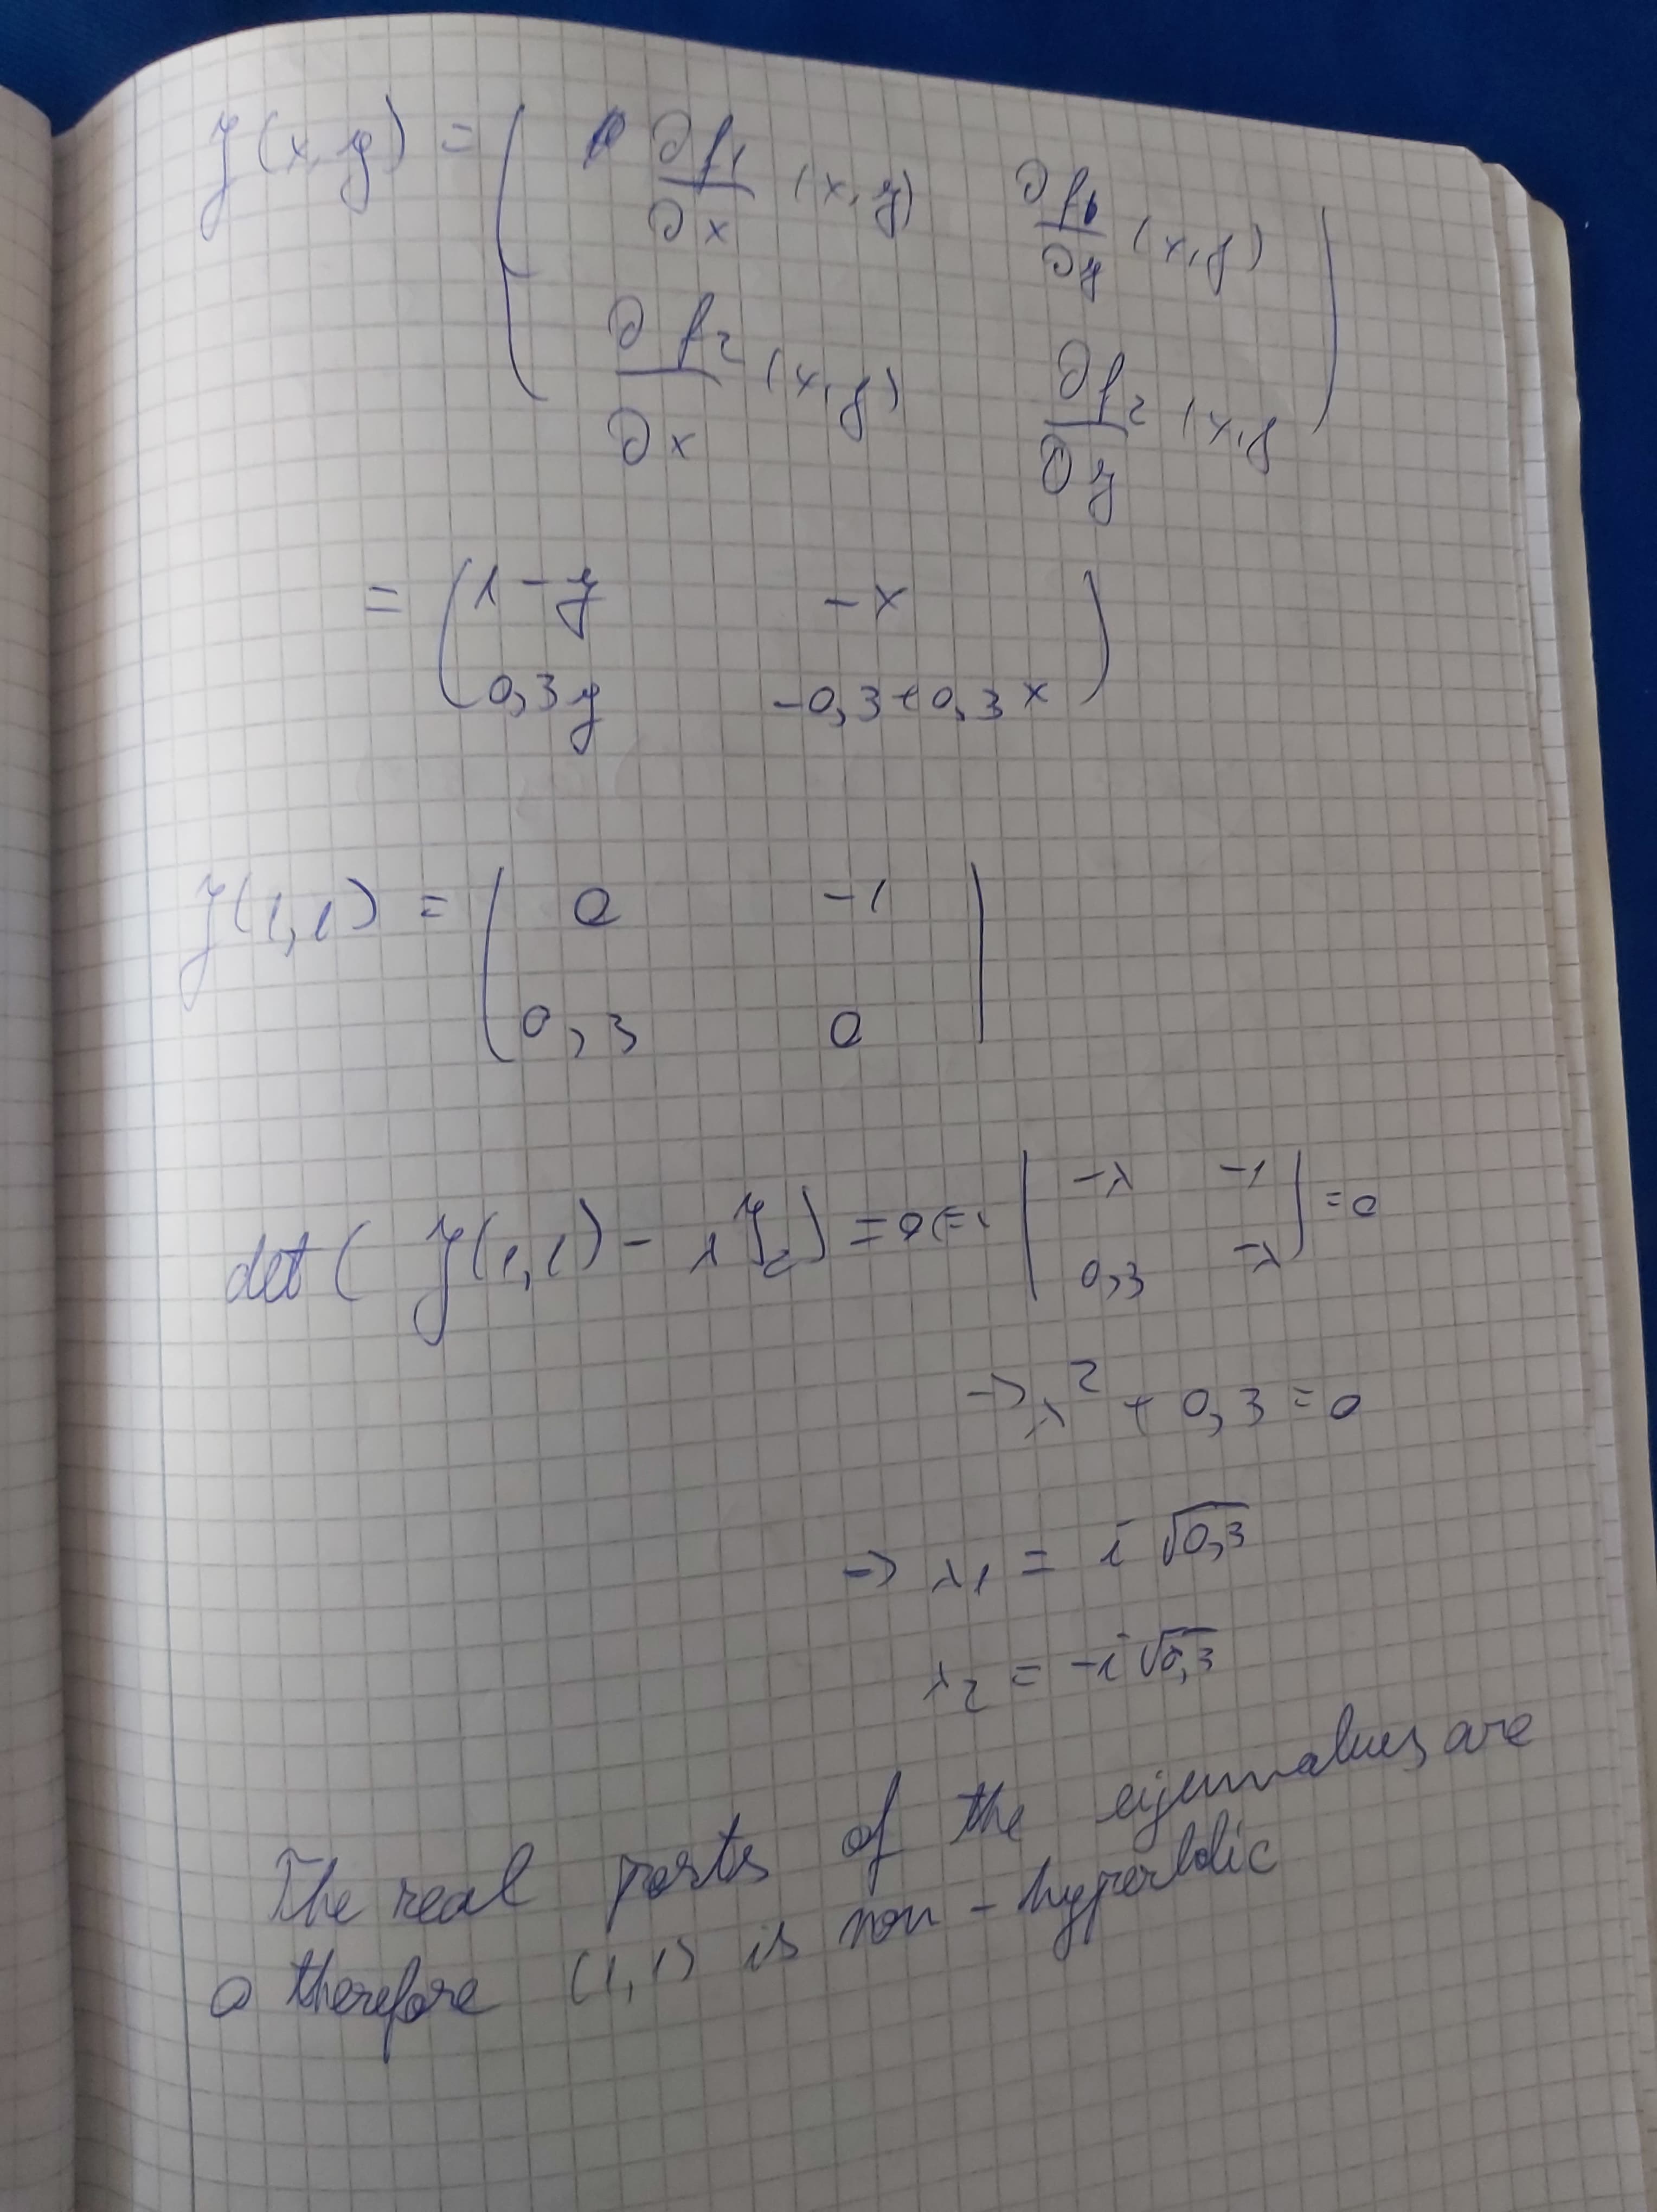 J(x,y) = ( ∂f1/∂x (x,y) ∂f1/∂y (x,y)
∂f2/∂x (x,y) ∂f2/∂y (x,y )
= ( 1-y -x
0,3y -0,3+0,3x )
J(1,1) = ( 0 -1
0,3 0 )
det( J(1,1) - λ I2 ) = 0 <=> | -λ -1
0,3 -λ | = 0
-> λ² + 0,3 = 0
-> λ1 = i √0,3
λ2 = -i √0,3
The real parts of the eigenvalues are
0 therefore (1,1) is non-hyperbolic